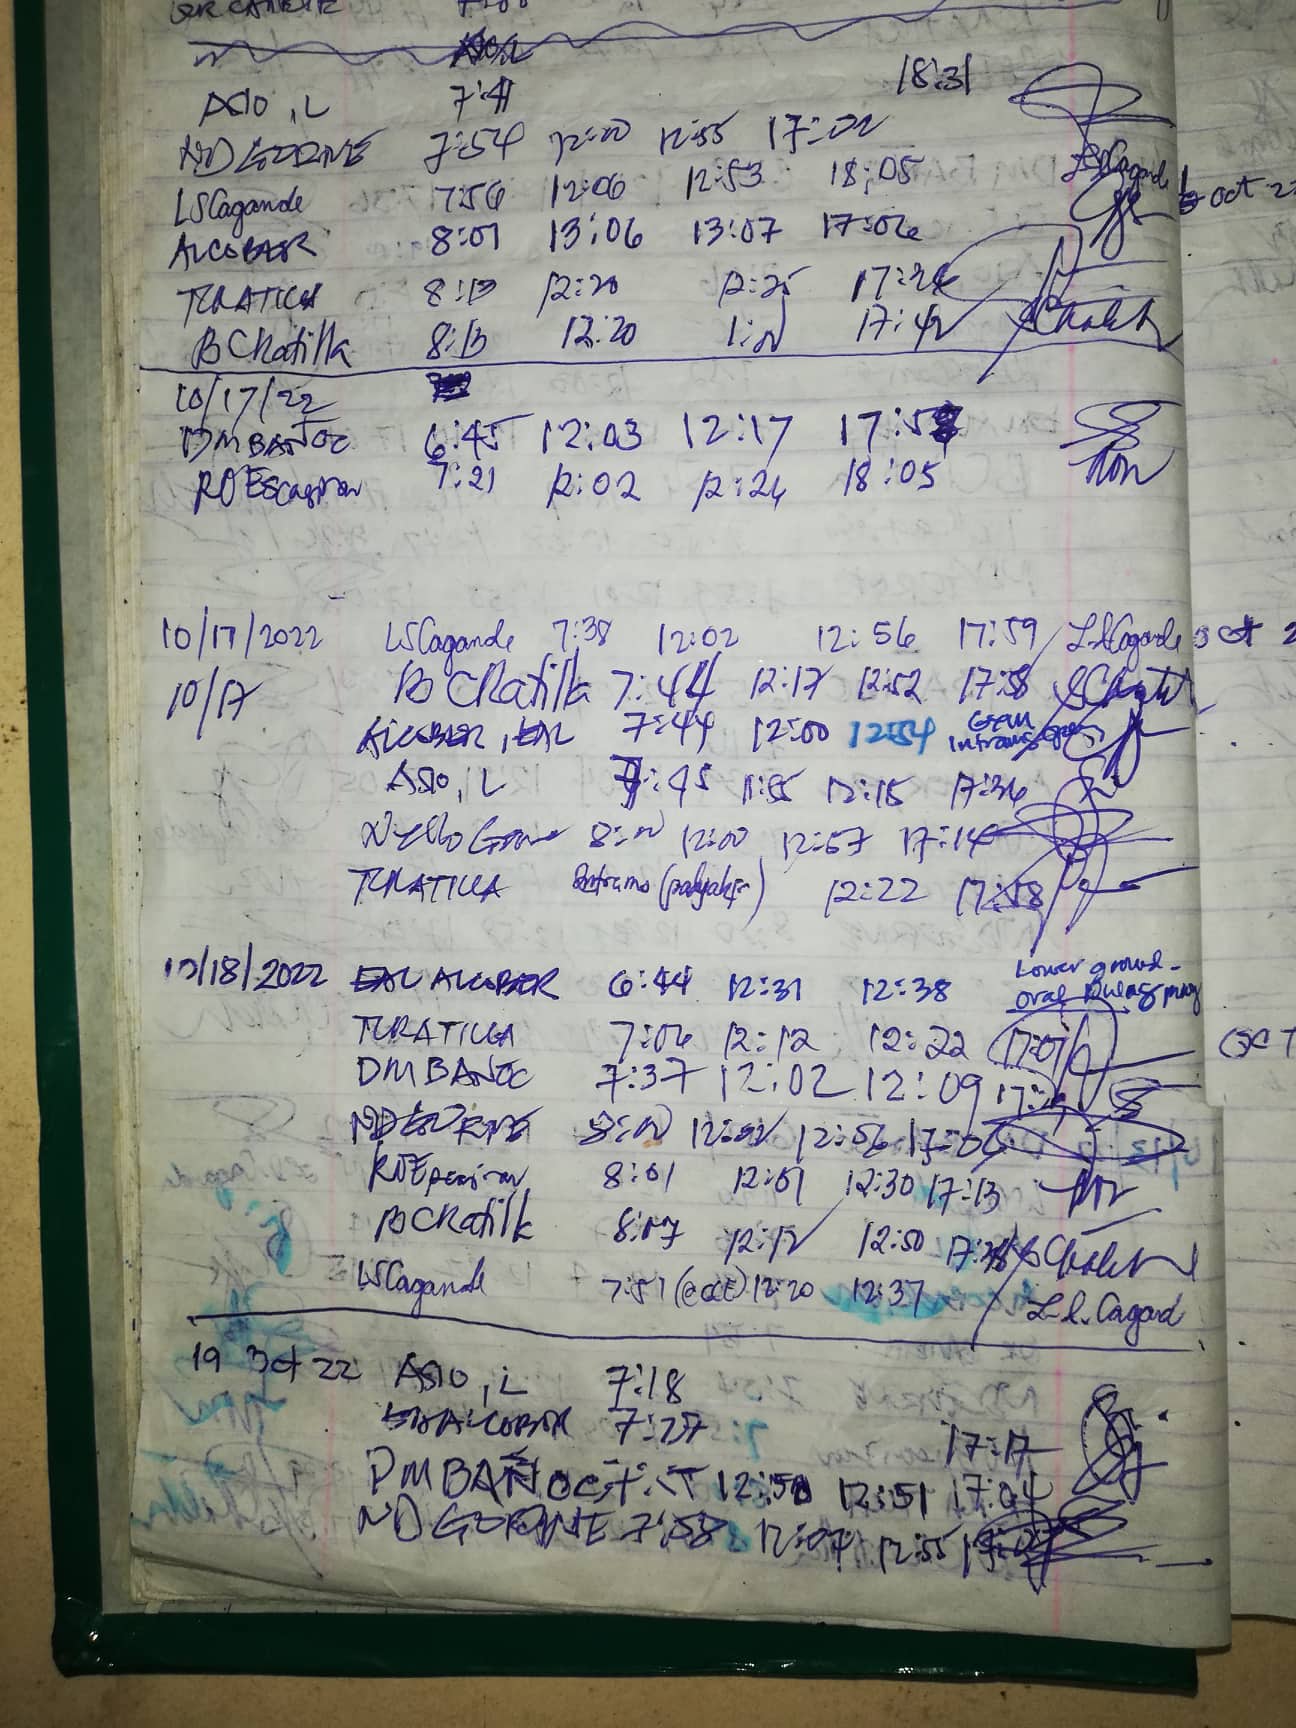 ASIO, L 7:41 18:31
ND GORNE 7:54 12:00 12:55 17:02
LSCagande 7:56 12:06 12:53 18:05 LSCagande
ALCOBER 8:01 13:06 13:07 17:06 Oct
TCRATILLA 8:13 12:20 12:25 17:26
BCRatilla 8:13 12:20 1:00 17:42
10/17/22
DMBANOC 6:45 12:03 12:17
ROEscasinas 7:21 12:02 12:24 18:05
10/17/2022 LSCagande 7:38 12:02 12:56 17:59 LSCagande
10/17 BCRatilla 7:44 12:17 12:52 17:58
ALCOBER, EAL 7:44 12:00 12:54
ASIO, L 7:45 11:55 12:15 17:36
Nello Gorne 8:00 12:00 12:57 17:14
TCRATILLA 12:22 17:58
10/18/2022 EAL ALCOBER 6:44 12:31 12:38 Lower ground-
TCRATILLA 7:06 12:12 12:22 17:07
DMBANOC 7:37 12:02 12:09
ND GORNE 8:00 12:02 12:56 17:06
8:01 12:01 12:30 17:13
BCRatilla 8:07 12:12 12:50
LSCagande 7:51 12:20 12:37 L.S. Cagand
19 Oct 22 ASIO, L 7:18
ALCOBER 7:27 17:17
DMBANOC 12:50 12:51 17:04
ND GORNE 7:58 12:07 12:55